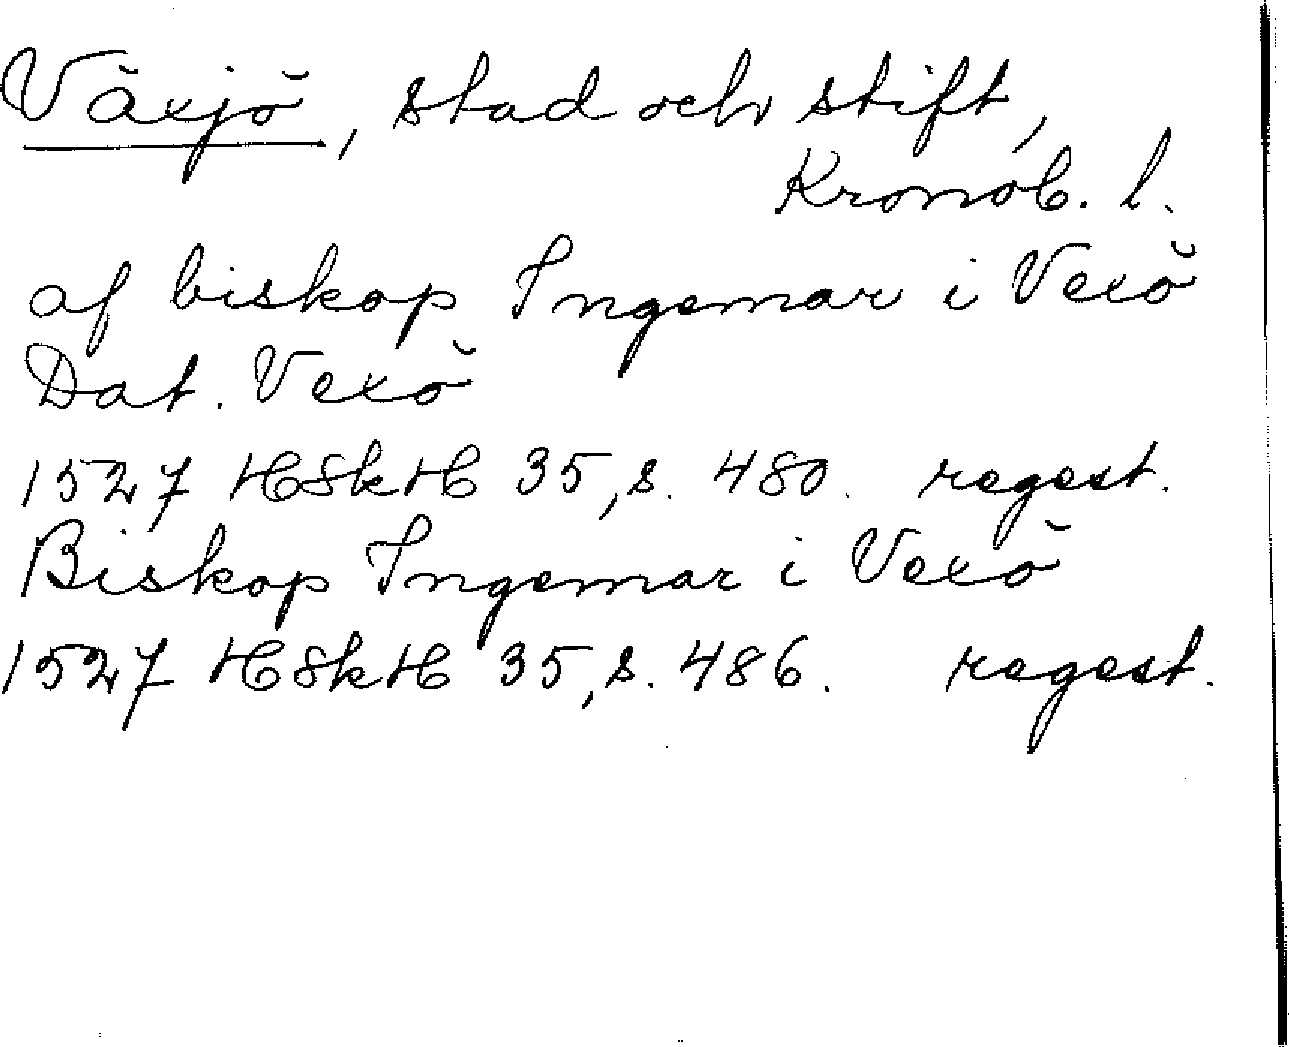 Växjö, stad och stift,
Kronob. l.
af biskop Ingemar i Vexö
Dat. Vexö
1527 HSkH 35, s. 480. regest.
Biskop Ingemar i Vexö
1527 HSkH 35, s. 486. regest.